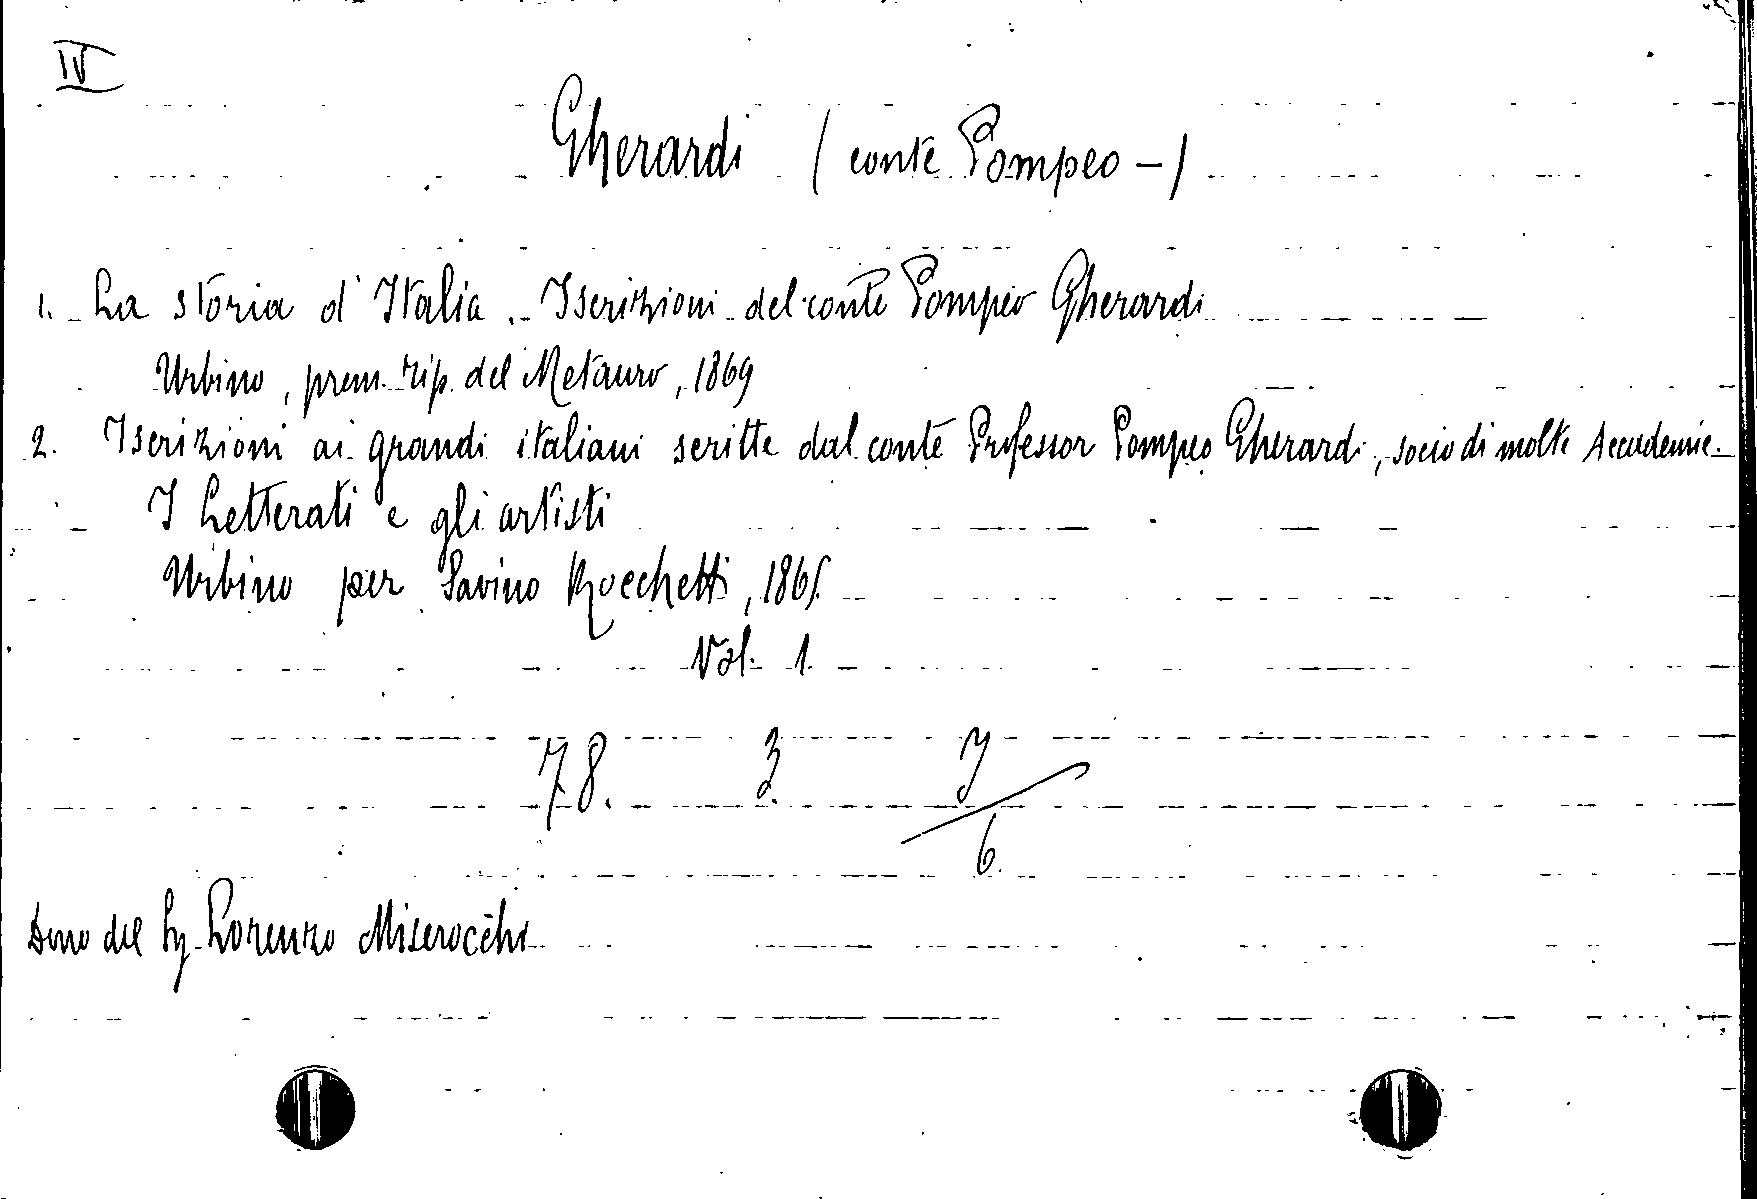 IV
Gherardi (conte Pompeo -)
1. La storia d'Italia. Iscrizioni del conte Pompeo Gherardi
Urbino, prem. tip. del Metauro, 1869
2. Iscrizioni ai grandi italiani scritte dal conte Professor Pompeo Gherardi, socio di molte Accademie.
I Letterati e gli artisti
Urbino per Savino Rocchetti, 186
Vol. 1.
78. 3.
6.
Dono del Sg. Lorenzo Miserocchi